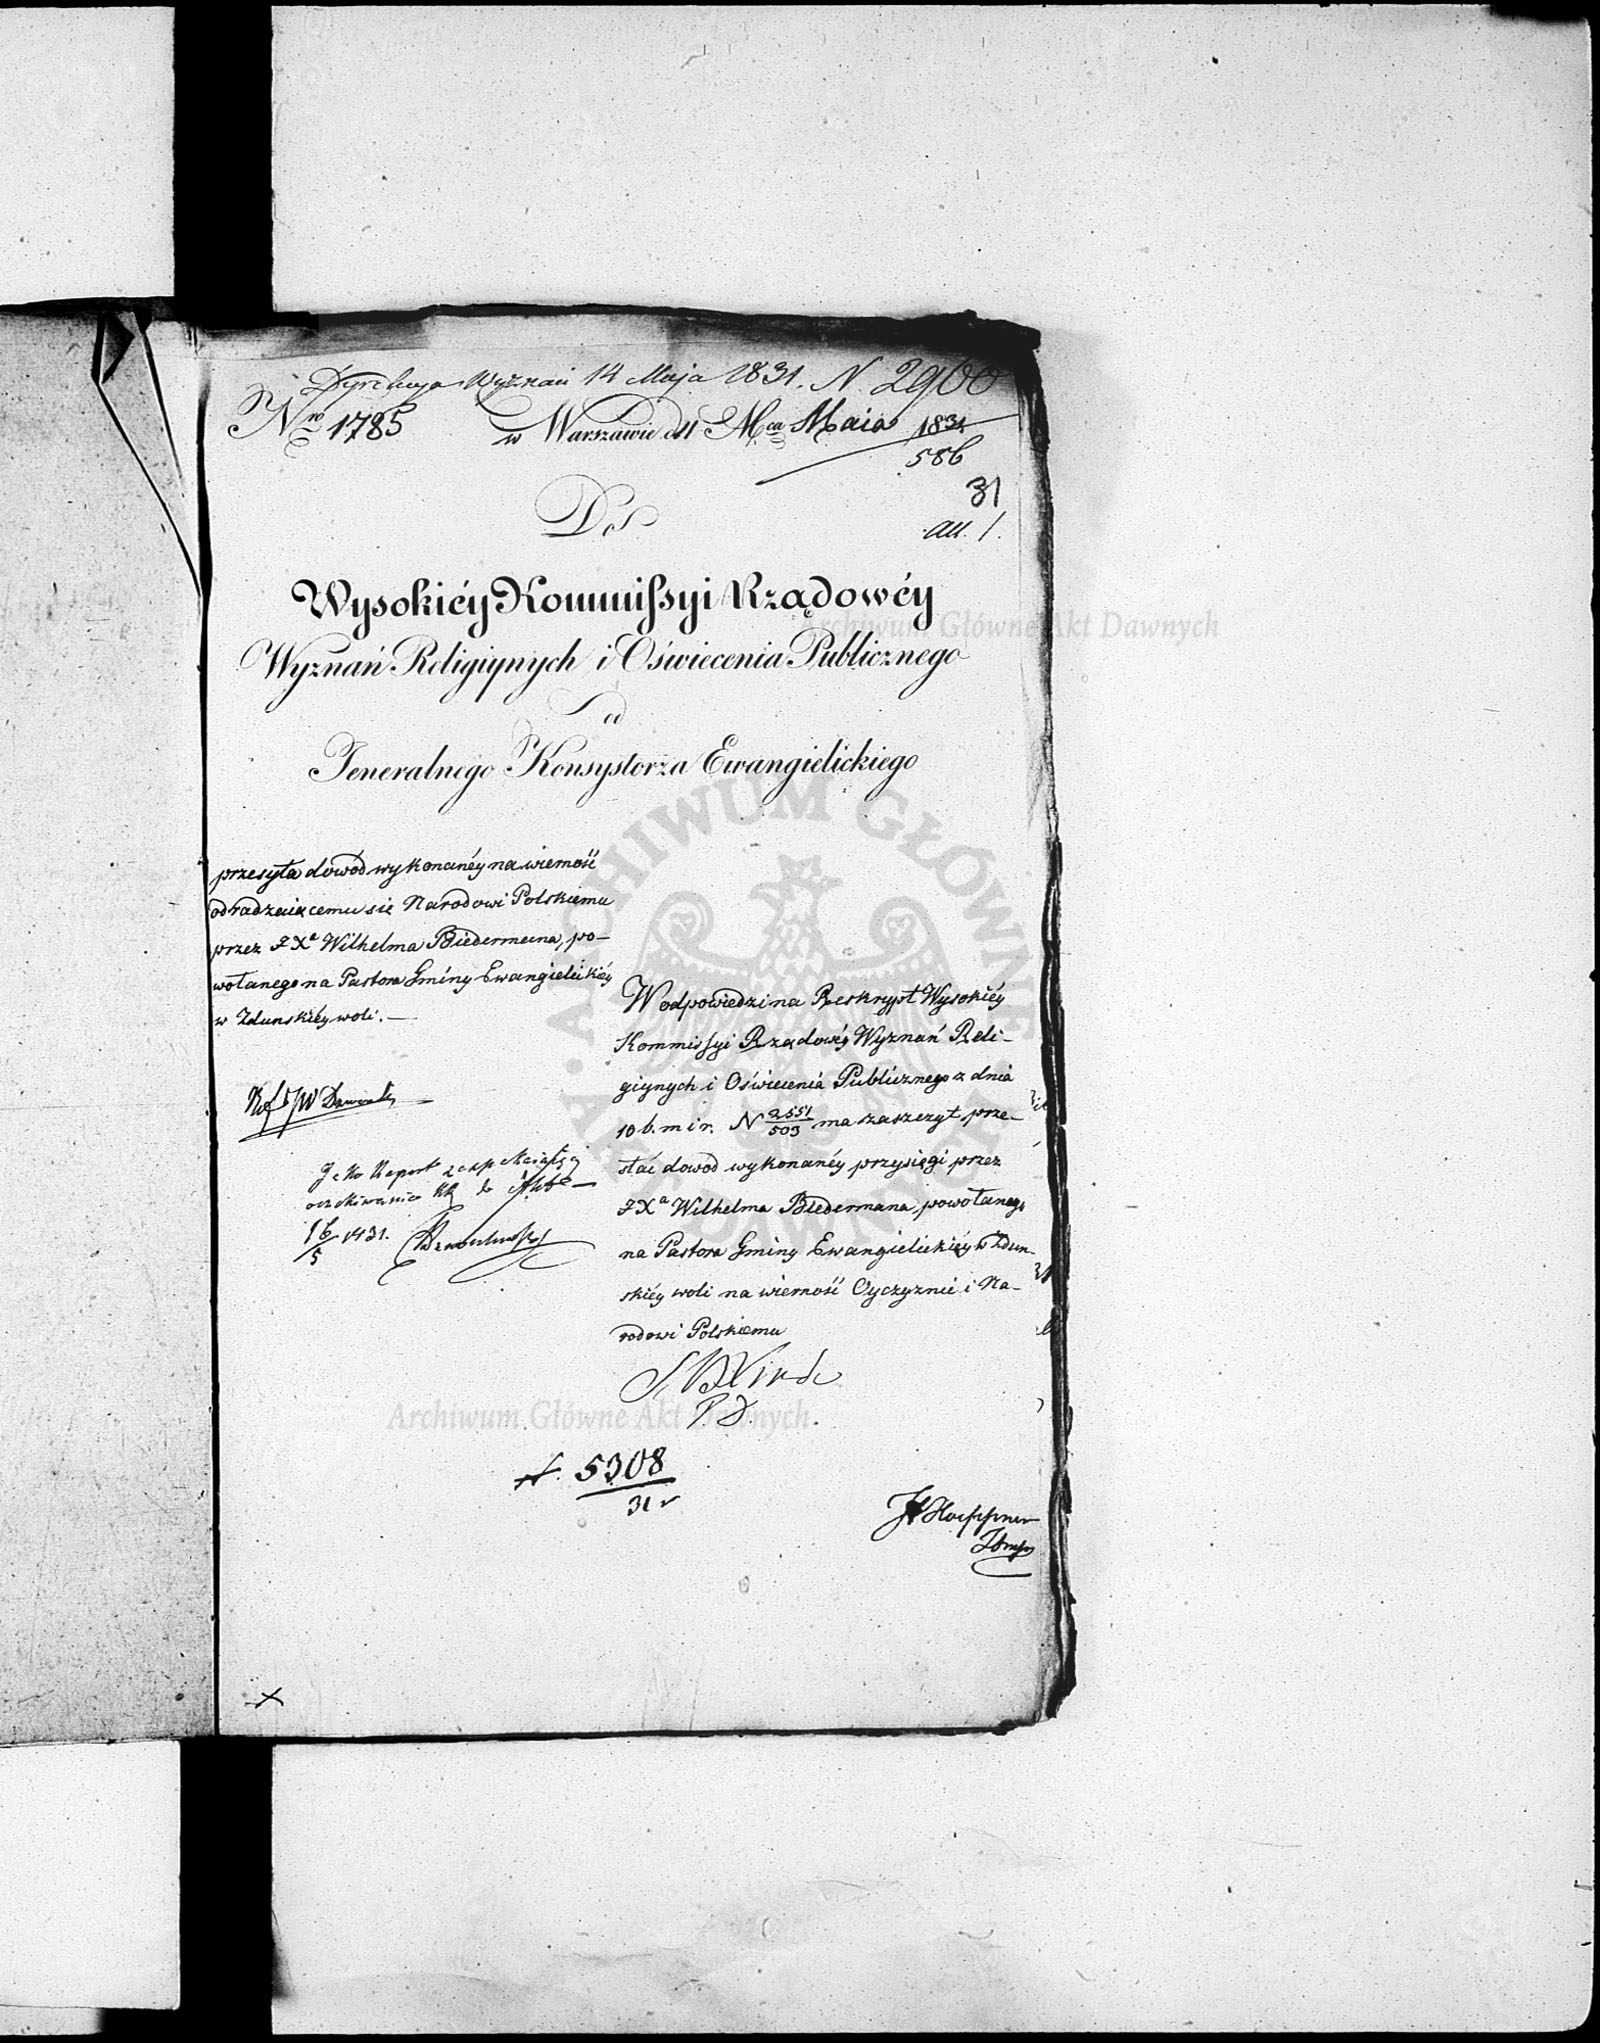 Dyrekcya Wyznań 14 Maja 1831. N. 2960
Nro 1785 w Warszawie d 11 Mca Maia 1831
586
31
all. 1.
Do
Wysokiéy Kommissyi Rządowéy
Wyznań Religiynych i Oświecenia Publicznego
od
Jeneralnego Konsystorza Ewangielickiego
przesyła dowód wykonanéy na wierność
odradzaiącemu się Narodowi Polskiemu
przez JXa Wilhelma Biedermana, po-
wołanego na Pastora Gminy Ewangielickiéy
w Zduńskiéy woli.—
W odpowiedzi na Reskrypt Wysokiéy
Kommissyi Rządowéy Wyznań Reli-
giynych i Oświecenia Publicznego z dnia
10 b. m i r. N 2551/503 ma zaszczyt prze-
słać dowod wykonanéy przysięgi przez
JXa Wilhelma Biedermana, powołanego
na Pastora Gminy Ewangielickiéy w Zduń-
skiéy woli na wierność Oyczyznie i Na-
rodowi Polskiemu
Jako Raport
16/5 1831.
P. D.
N. 5308
31
JHoeppner
Archiwum Główne Akt Dawnych
Archiwum Główne Akt Dawnych
ARCHIWUM GŁÓWNE AKT DAWNYCH